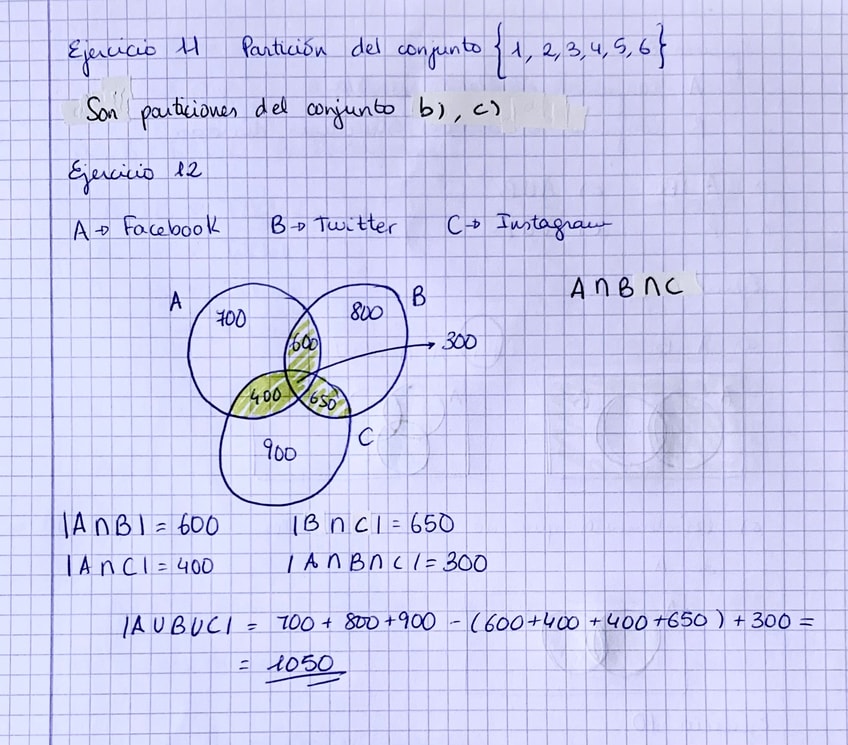 Ejercicio 11 Partición del conjunto {1, 2, 3, 4, 5, 6}
Son particiones del conjunto b), c)
Ejercicio 12
A → Facebook B → Twitter C → Instagram
A ∩ B ∩ C
A 700 800 B
600 → 300
400 650
C
900
|A ∩ B| = 600 |B ∩ C| = 650
|A ∩ C| = 400 |A ∩ B ∩ C| = 300
|A ∪ B ∪ C| = 700 + 800 + 900 - (600 + 400 + 400 + 650) + 300 =
= 1050